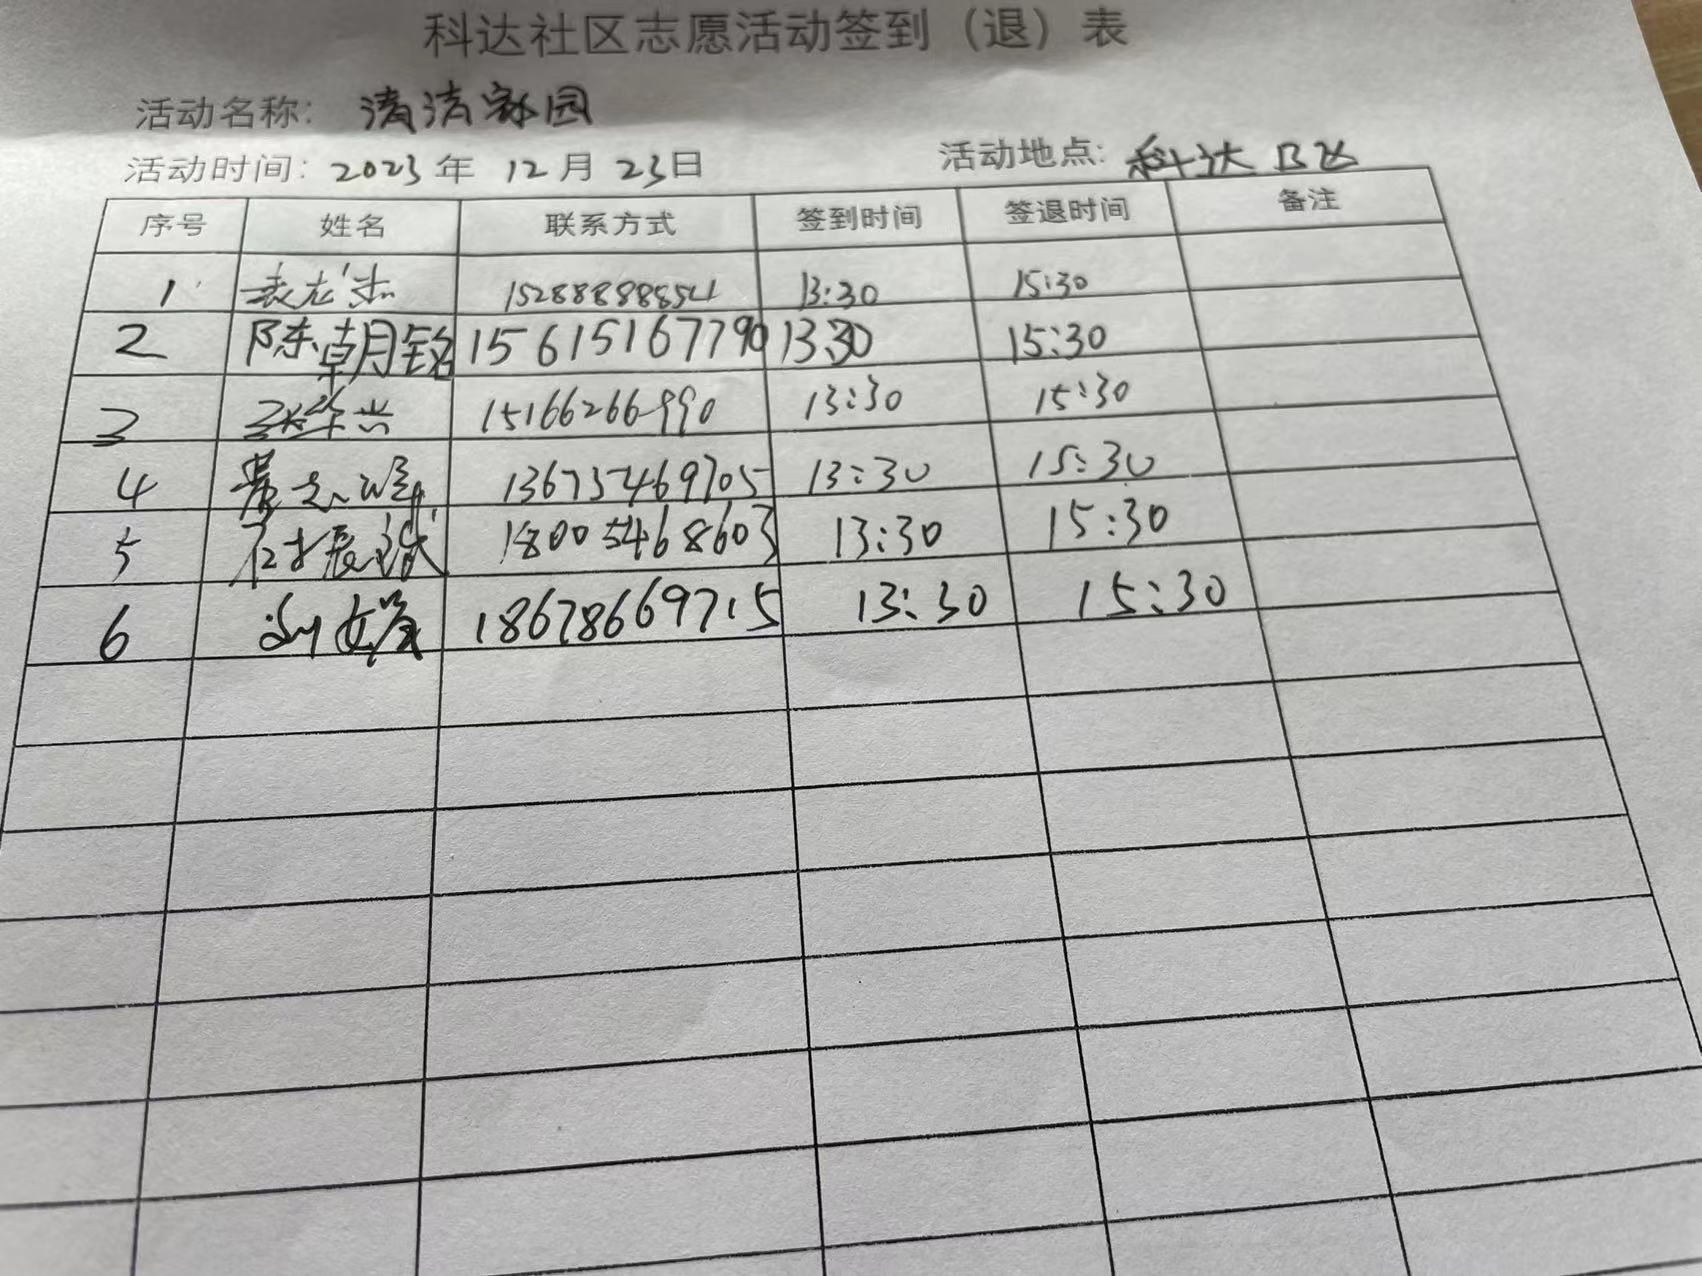 科达社区志愿活动签到（退）表
活动名称： 清洁家园
活动时间：2023年 12月 23日 活动地点：科达B区
序号 姓名 联系方式 签到时间 签退时间 备注
1 15288888854 13:30 15:30
2 陈朝铭 15615167790 13:30 15:30
3 张华兴 15166266990 13:30 15:30
4 13675469705 13:30 15:30
5 18005468603 13:30 15:30
6 18678669715 13:30 15:30